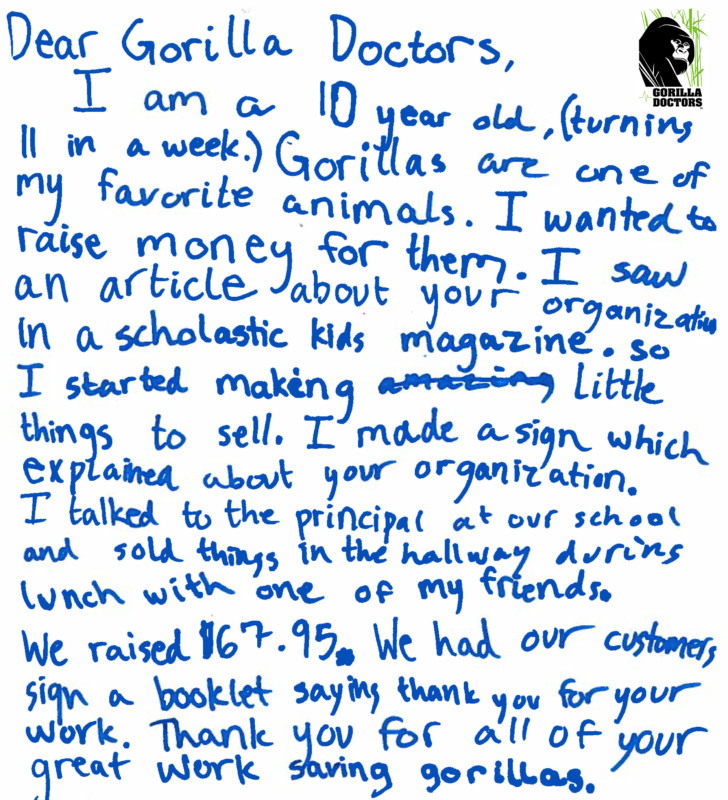 Dear Gorilla Doctors,
GORILLA
DOCTORS
I am a 10 year old, (turning
11 in a week.) Gorillas are one of
my favorite animals. I wanted to
raise money for them. I saw
an article about your organization
in a scholastic kids magazine. so
I started making amazing little
things to sell. I made a sign which
explained about your organization.
I talked to the principal at our school
and sold things in the hallway during
lunch with one of my friends.
We raised $67.95. We had our customers
sign a booklet saying thank you for your
work. Thank you for all of your
great work saving gorillas.